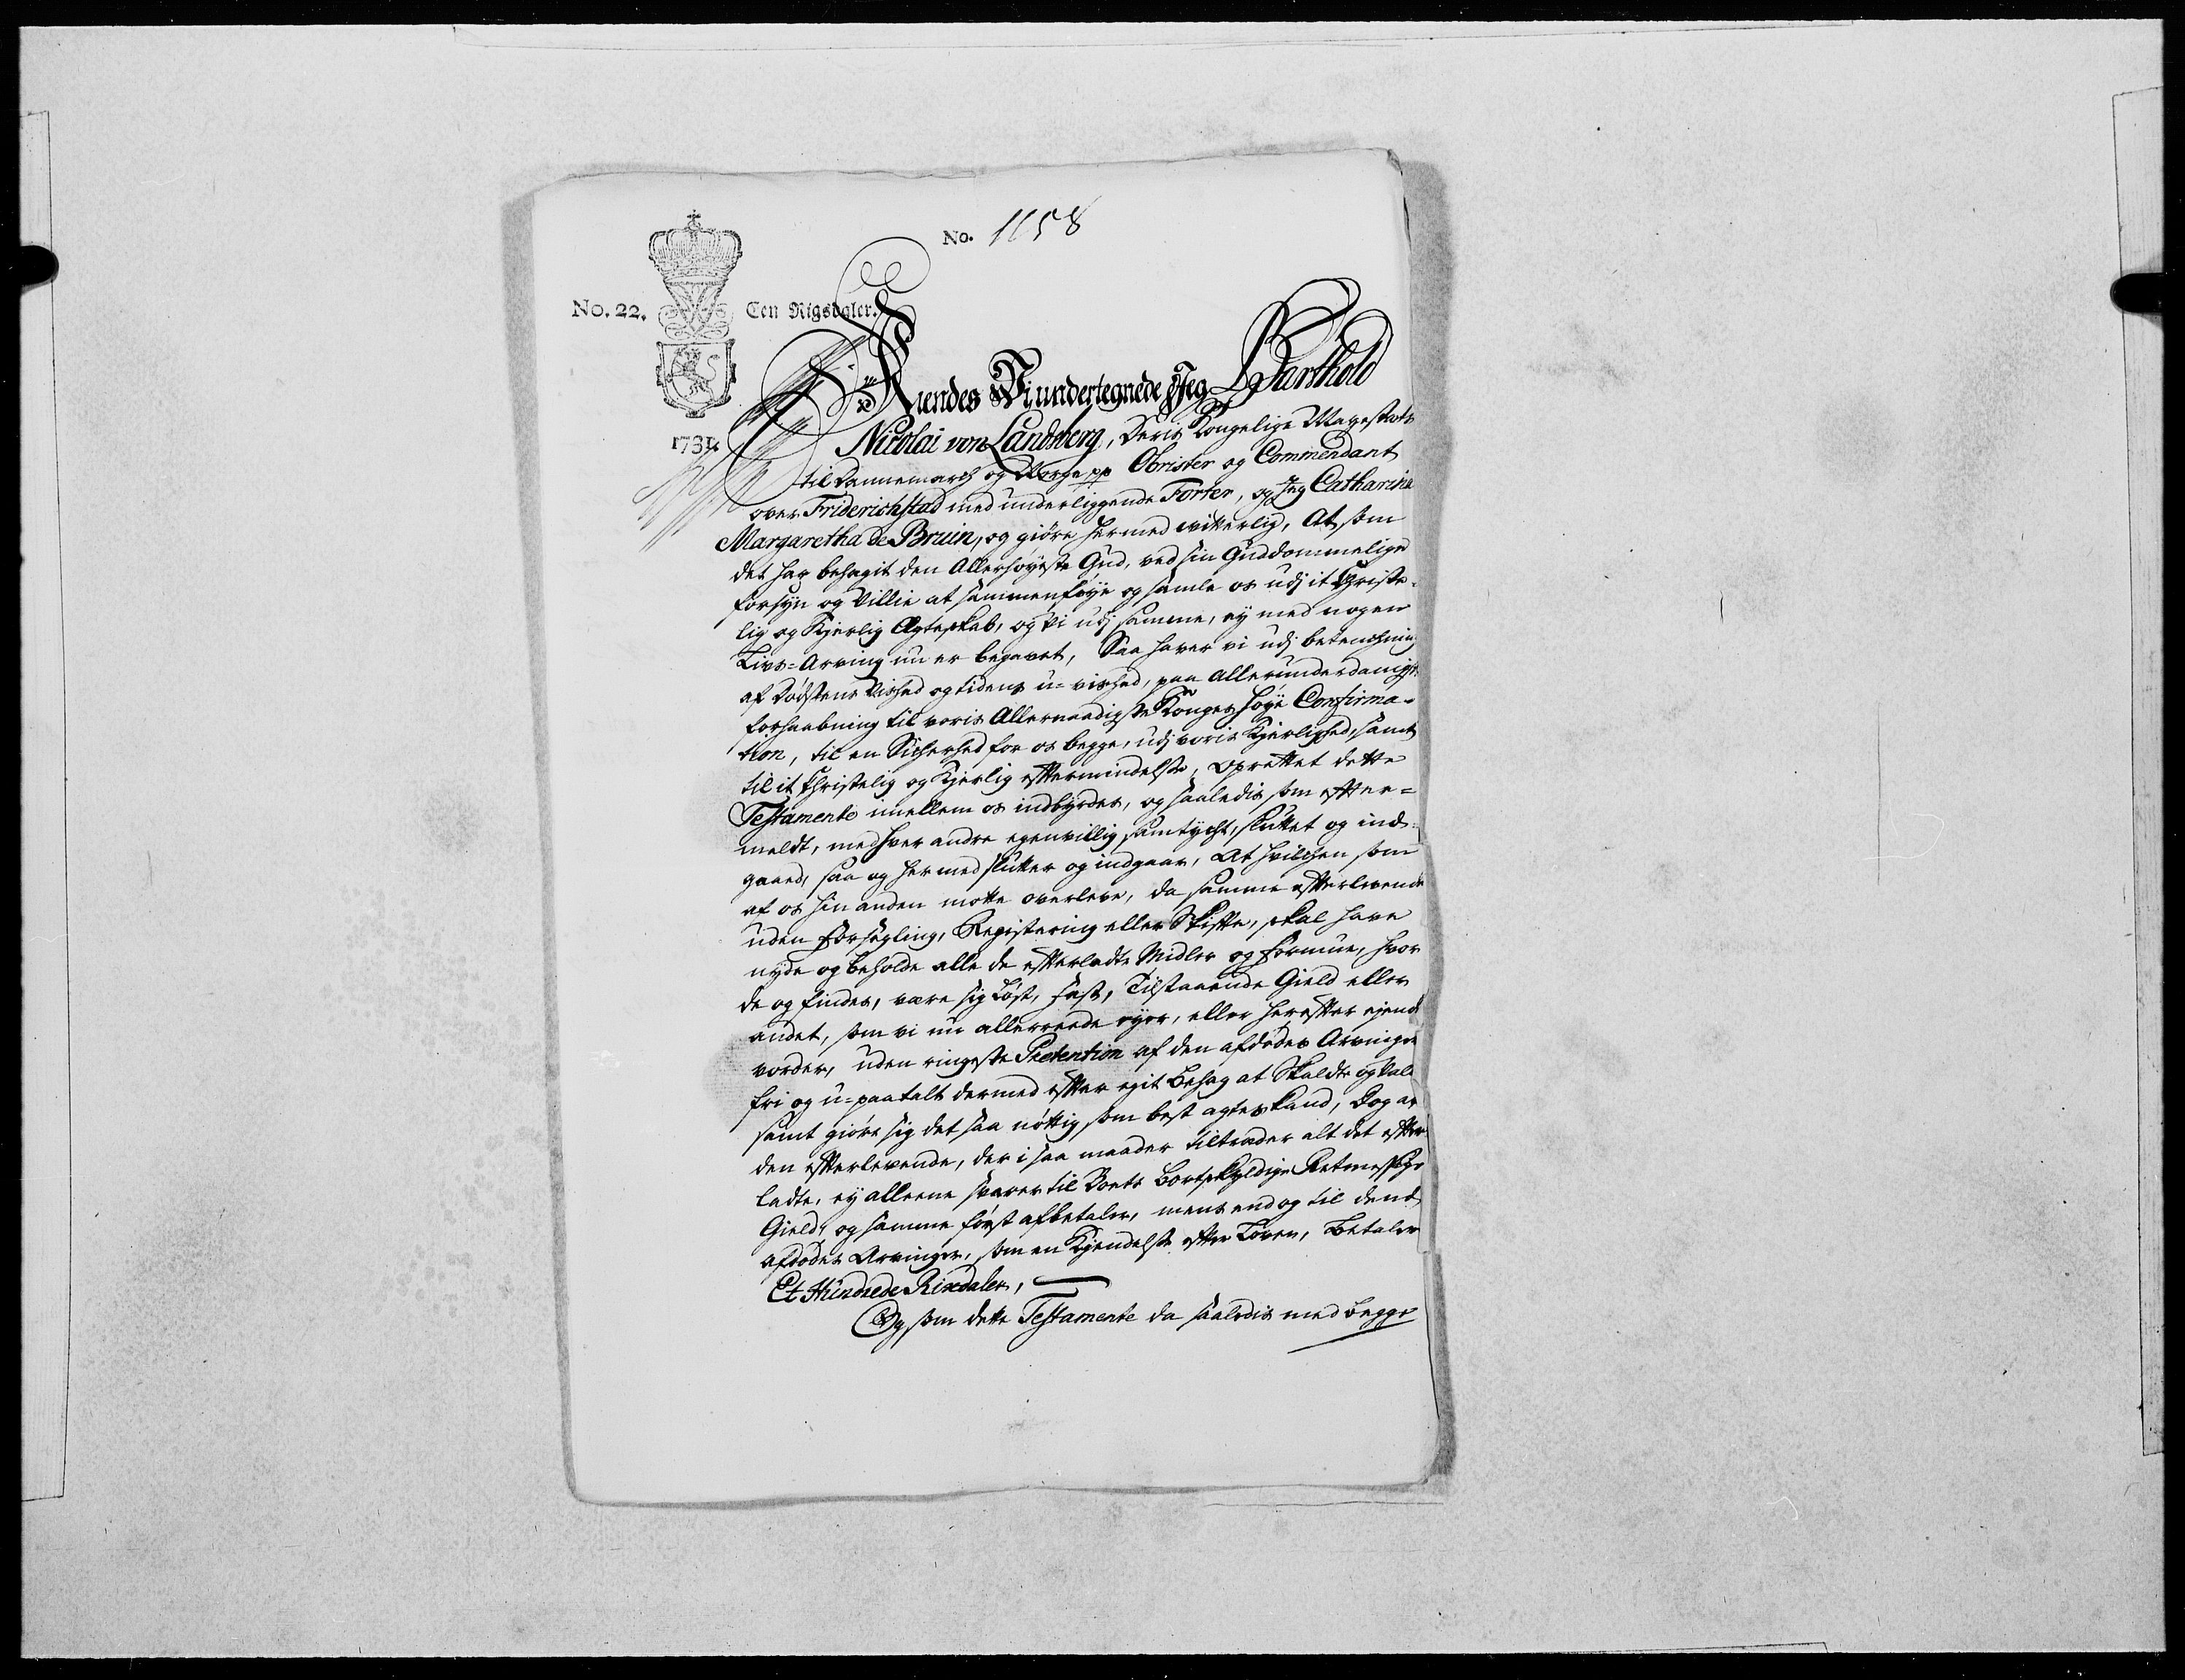 No. 1158
No. 22. Een Rigsdaler.
1731.
Kiendes Vi undertegnede Jeg Barthold
Nicolai von Landsberg, Deris Kongelige Mayestets
til Dannemarch og Norge pp Obrister og Commendant
over Friderichstad med underliggende Forter, og Jeg Catharina
Margaretha de Bruin, og giøre hermed vitterlig, At som
det har behagit den Allerhøyeste Gud, ved sin Guddommelige
forsyn og Villie at sammenføye og samle os udj it Christe-
lig og Kjerlig Ægteskab, og vi udj samme, ey med nogen
Livs-Arving nu er begavet, Saa haver vi udj betenchning
af Dødsens Vished og tidens u-vished, paa allerunderdanigst
forhaabning til voris Allernaadigste Konges høye Confirma-
tion, til en Sicherhed for os begge, udj voris Kjerlighed, samt
til it Christelig og Kjerlig eftermindelse, oprettet dette
Testamente imellem os indbyrdes, og saaledis som efter-
meldt, med hver andre egenvillig samtycht, sluttet og ind-
gaaed, saa og hermed slutter og indgaar, At hvilchen som
af os hin anden motte overleve, da samme efterlevende
uden forsegling, Registering eller Skifte, skal have
nyde og beholde alle de efterladte Midler og formue, hvor
de og findes, være sig Løst, fast, Tilstaaende Gield eller
andet, som vi nu allerreede eyer, eller herefter ejende
vorder, uden ringeste Prætention af den afdødes Arvinger
fri og u-paatalt dermed efter egit behag at Skalte og Valte
samt giøre sig det saa nøttig som best agtes kand, Dog at
den efterlevende, der i saa maader tiltræder alt det efter-
ladte, ey alleene svarer til Boets bortskyldige Retmessige
Gield, og samme først afbetaler, mens end og til dend
afdødes Arvinger, som en Kjendelse efter Loven, betaler
Et Hundrede Rixdaler,
Og som dette Testamente da saaledis med begge